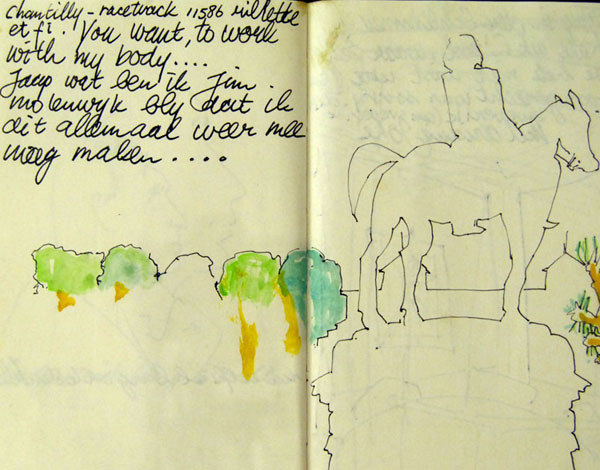 chantilly - racetrack 11586 Millette
et fi. You want, to work
with my body....
Jaap wat ben ik Jim.
molenwyk bly dat ik
dit allemaal weer mee
maken ....